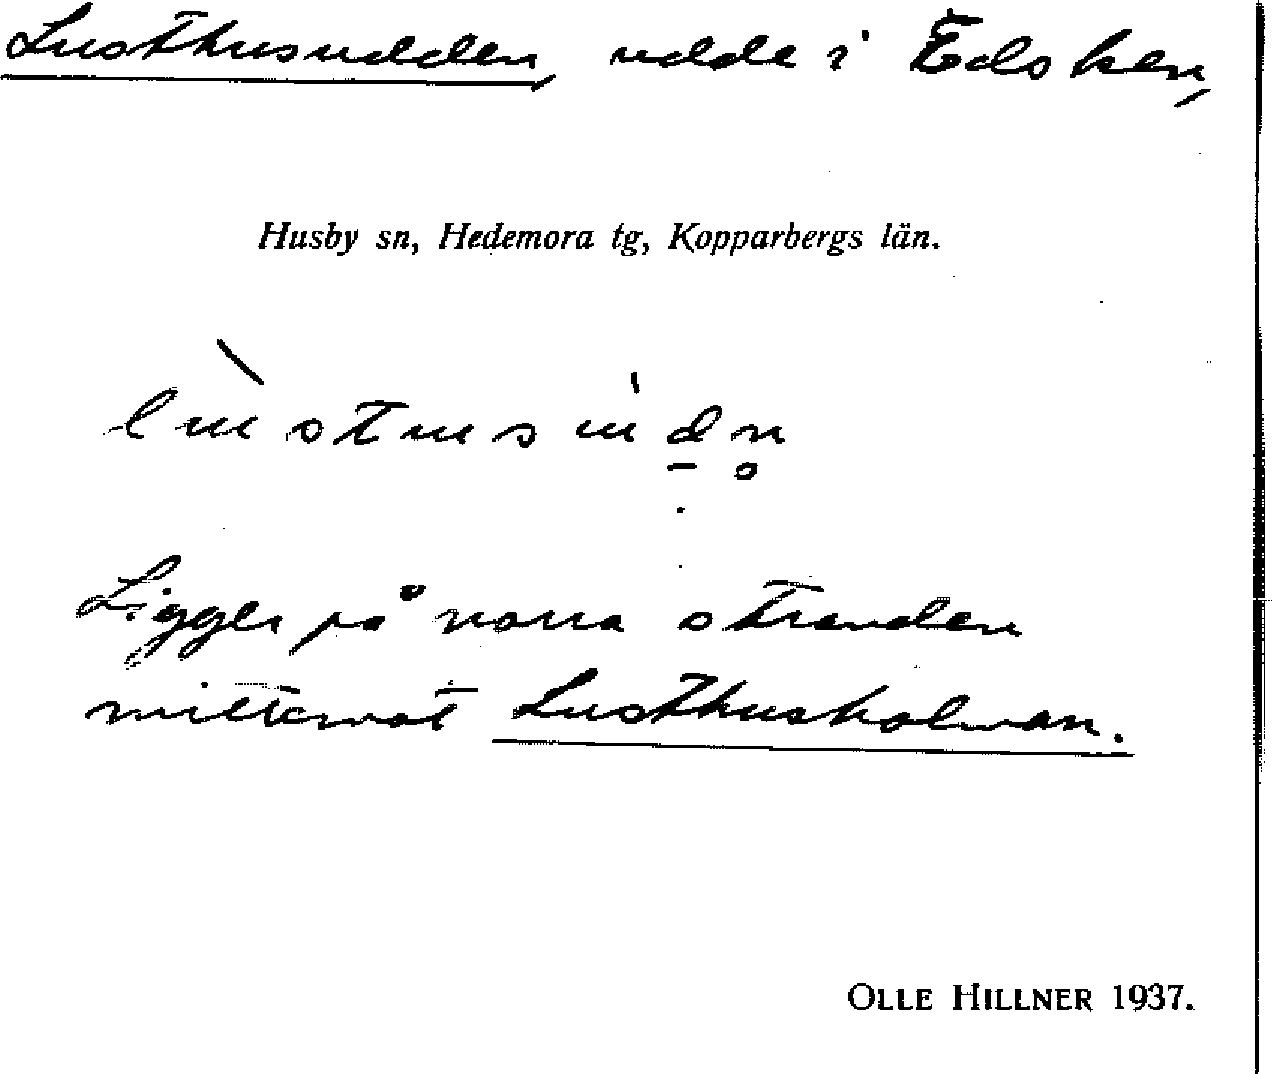 Lusthusudden, udde i Edsken,
Husby sn, Hedemora tg, Kopparbergs län.
lùstusúd̠n̥
Ligger på norra stranden
mittemot Lusthusholmen.
OLLE HILLNER 1937.